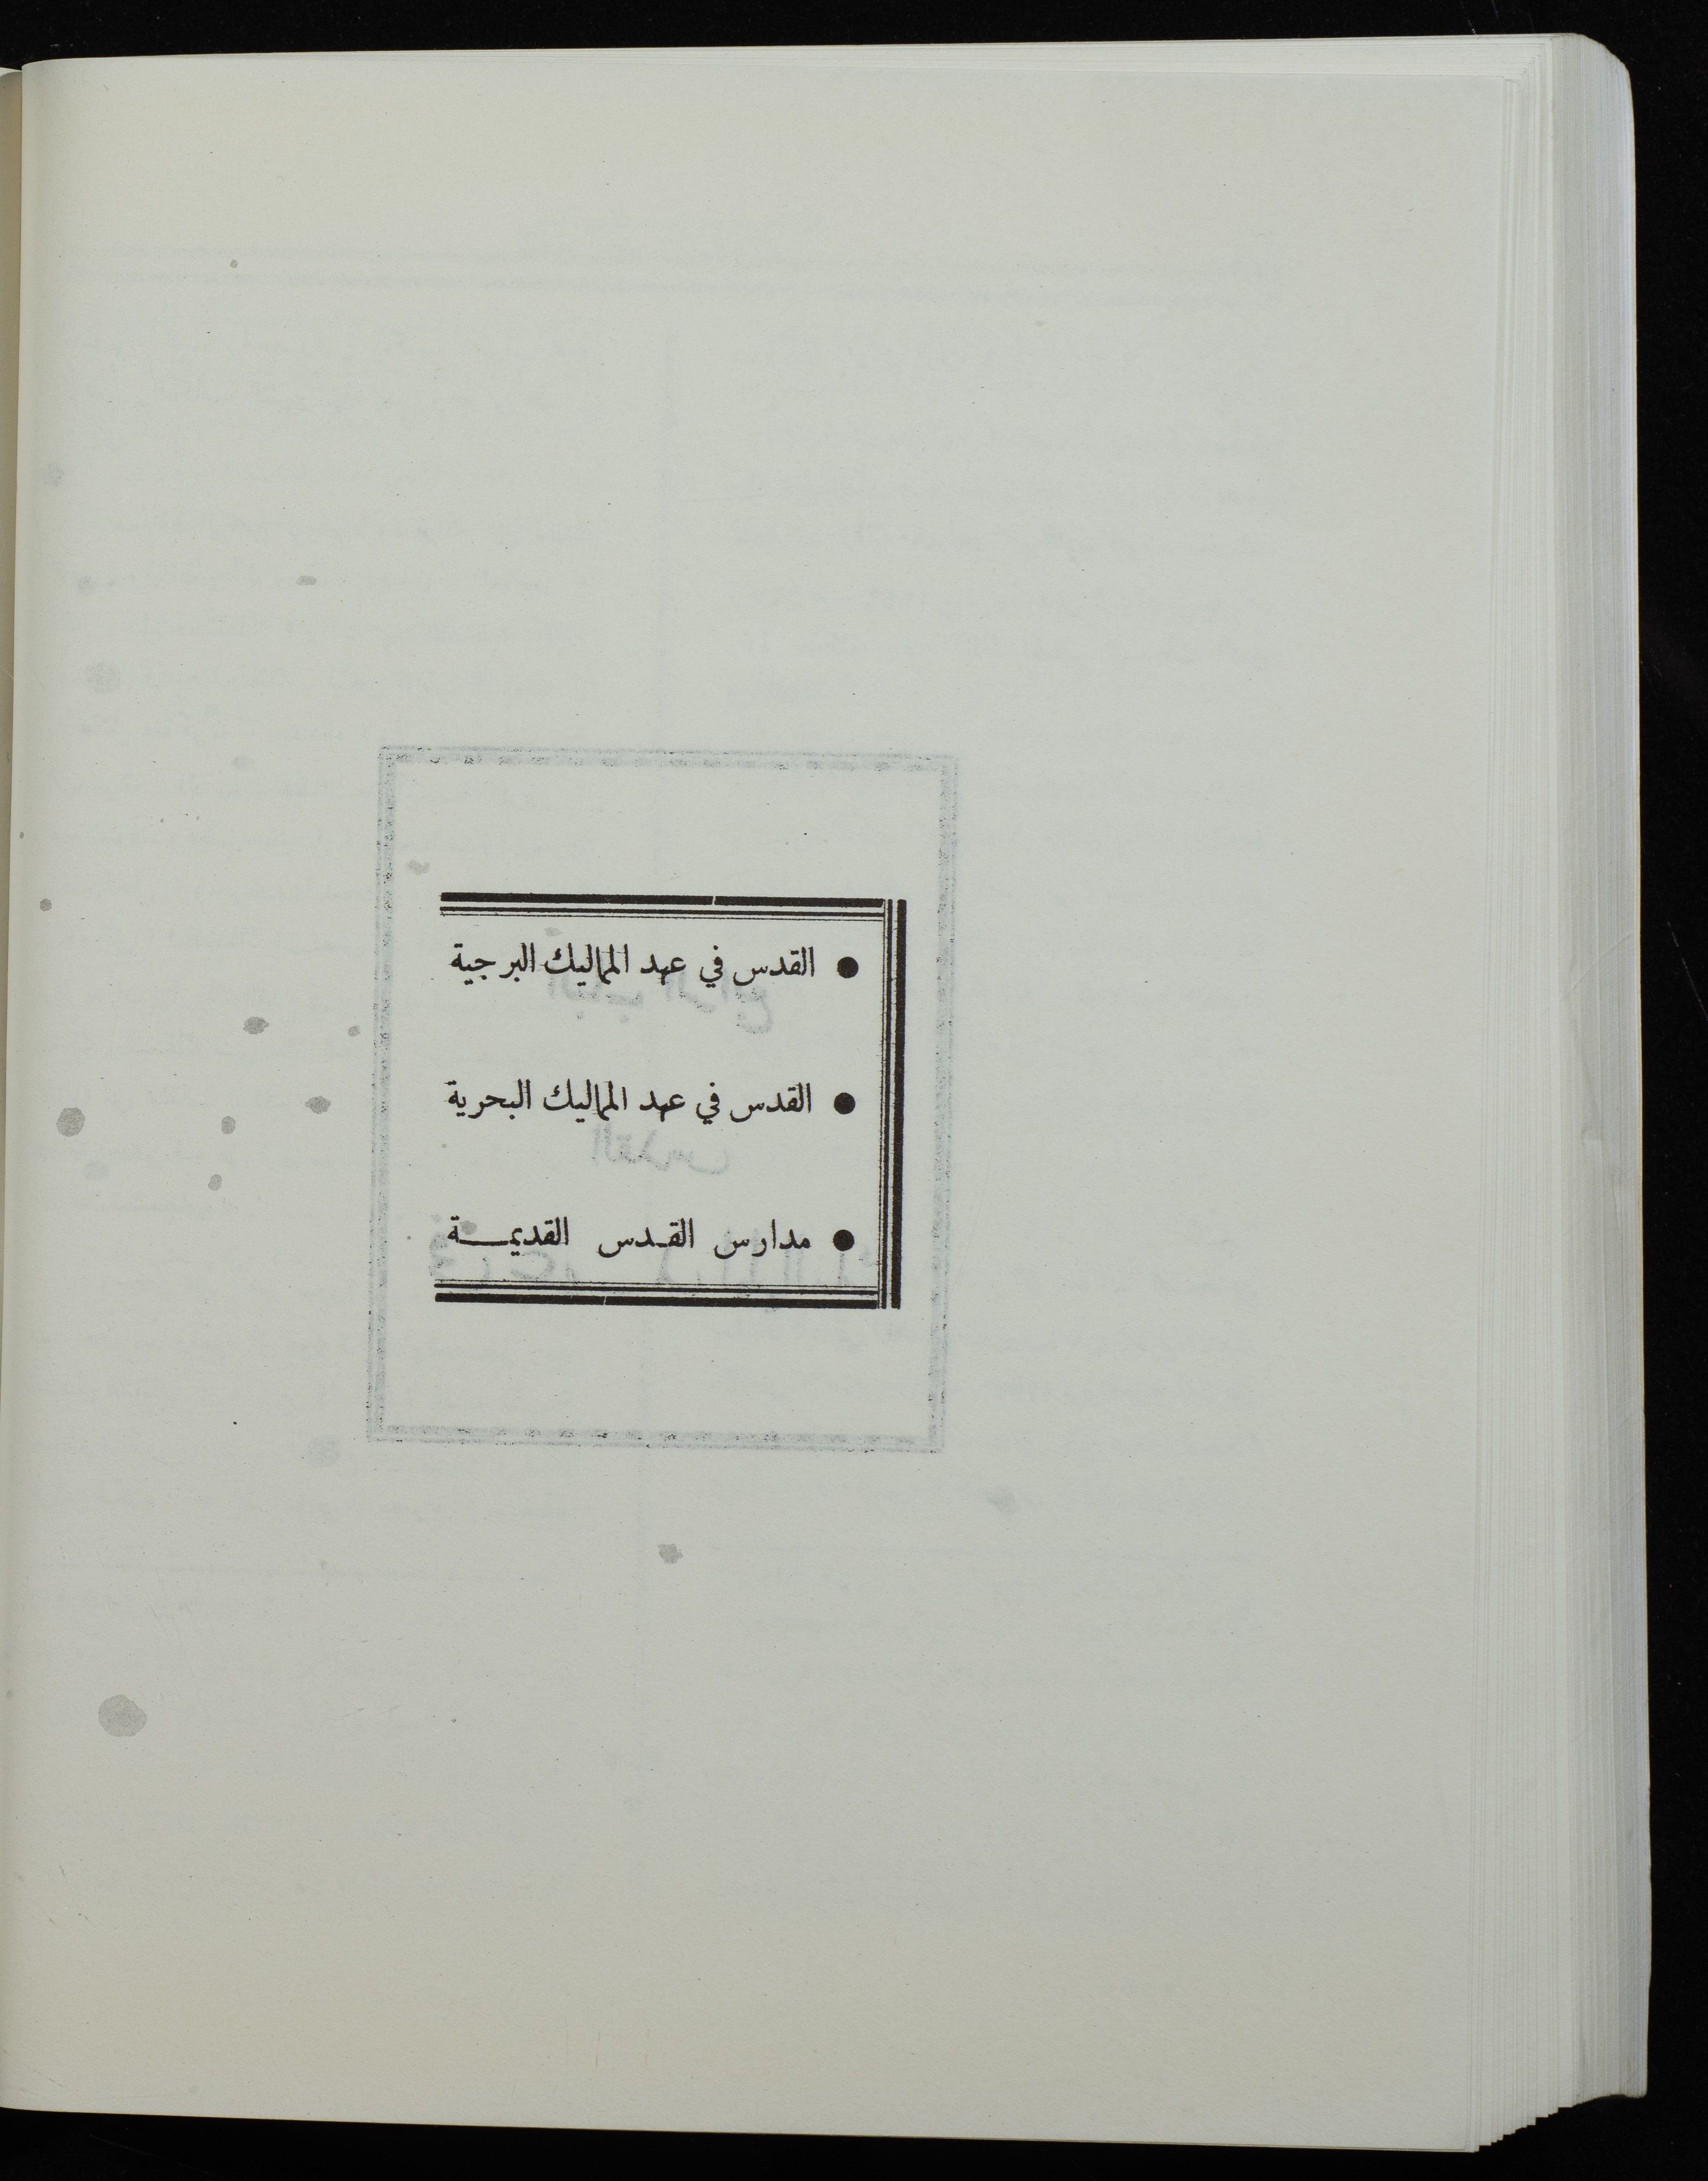 ● القدس في عهد المماليك البرجية
● القدس في عهد المماليك البحرية
● مدارس القـدس القديمـــة